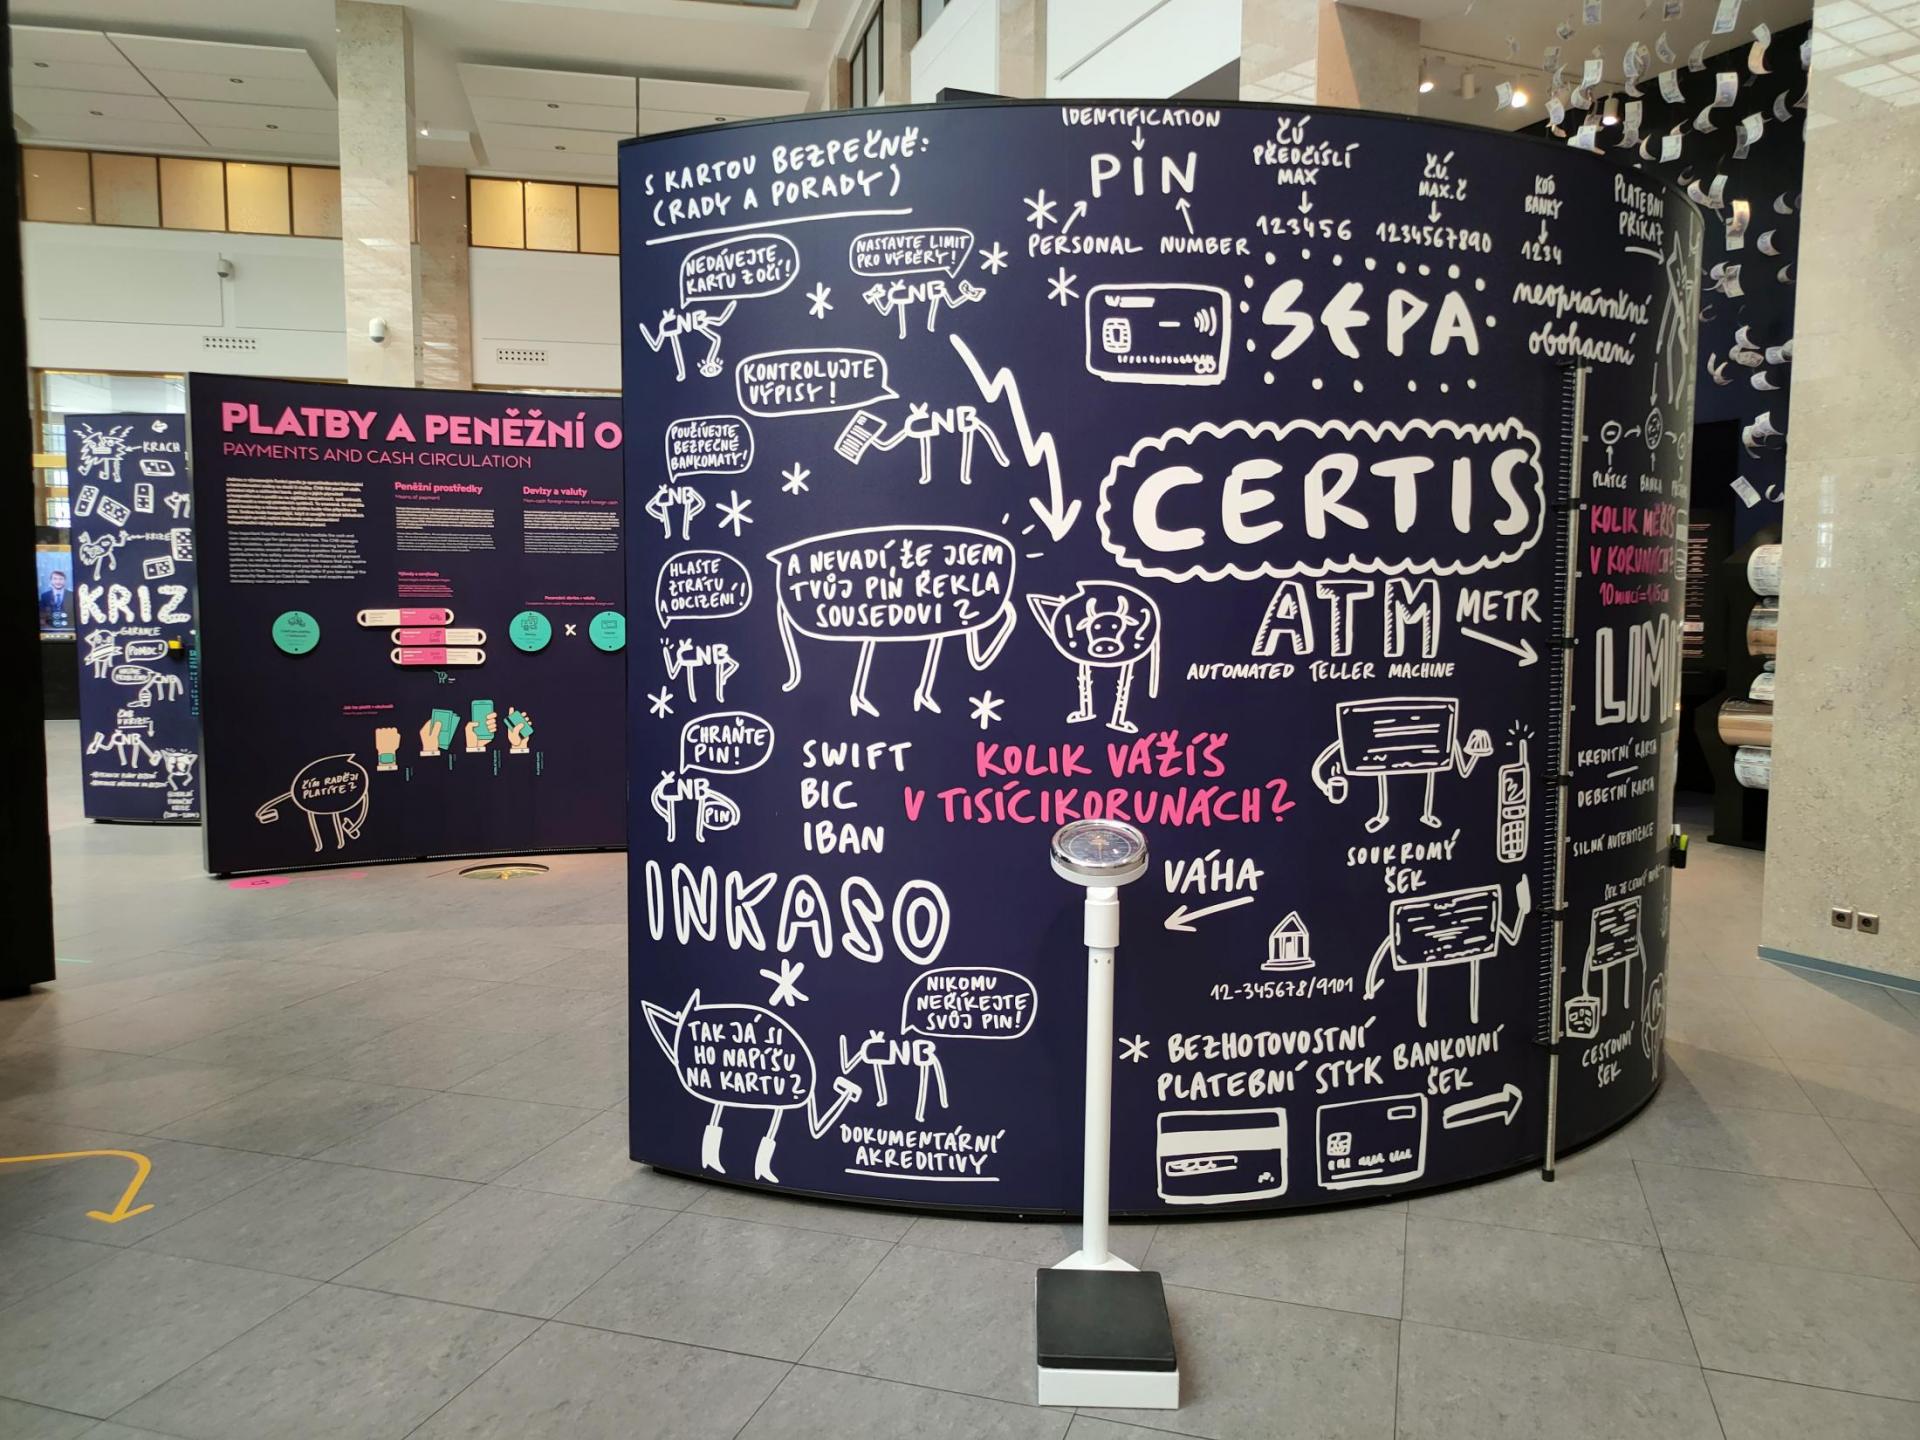 S KARTOU BEZPEČNĚ:
(RADY A PORADY)
NEDÁVEJTE
KARTU Z OČÍ!
ČNB
NASTAVTE LIMIT
PRO VÝBĚRY!
ČNB
KONTROLUJTE
VÝPISY!
ČNB
POUŽÍVEJTE
BEZPEČNÉ
BANKOMATY!
ČNB
HLASTE
ZTRÁTU
A ODCIZENÍ!
ČNB
CHRAŇTE
PIN!
ČNB
PIN
A NEVADÍ, ŽE JSEM
TVŮJ PIN ŘEKLA
SOUSEDOVI?
SWIFT
BIC
IBAN
INKASO
TAK JÁ SI
HO NAPÍŠU
NA KARTU?
NIKOMU
NEŘÍKEJTE
SVŮJ PIN!
ČNB
DOKUMENTÁRNÍ
AKREDITIVY
IDENTIFICATION
PIN
PERSONAL NUMBER
ČÚ
PŘEDČÍSLÍ
MAX
123456
Č.Ú.
MAX.Č
1234567890
KÓD
BANKY
1234
PLATEBNÍ
PŘÍKAZ
SEPA
neoprávněné
obohacení
CERTIS
ATM
AUTOMATED TELLER MACHINE
METR
KOLIK VÁŽÍŠ
V TISÍCIKORUNÁCH?
VÁHA
SOUKROMÝ
ŠEK
12-345678/9101
BEZHOTOVOSTNÍ
PLATEBNÍ STYK
BANKOVNÍ
ŠEK
PLÁTCE
BANKA
KOLIK MĚŘÍŠ
V KORUNÁCH?
LIMI
KREDITNÍ KARTA
DEBETNÍ KARTA
SILNÁ AUTENTIZACE
CESTOVNÍ
ŠEK
PLATBY A PENĚŽNÍ O
PAYMENTS AND CASH CIRCULATION
Peněžní prostředky
Means of payment
Devizy a valuty
ČÍM RADĚJI
PLATÍTE?
KRACH
KRIZE
KRIZ
GARANCE
POMOC!
ČNB
ČNB
V KRIZI
ČNB
GLOBÁLNÍ
FINANČNÍ
KRIZE